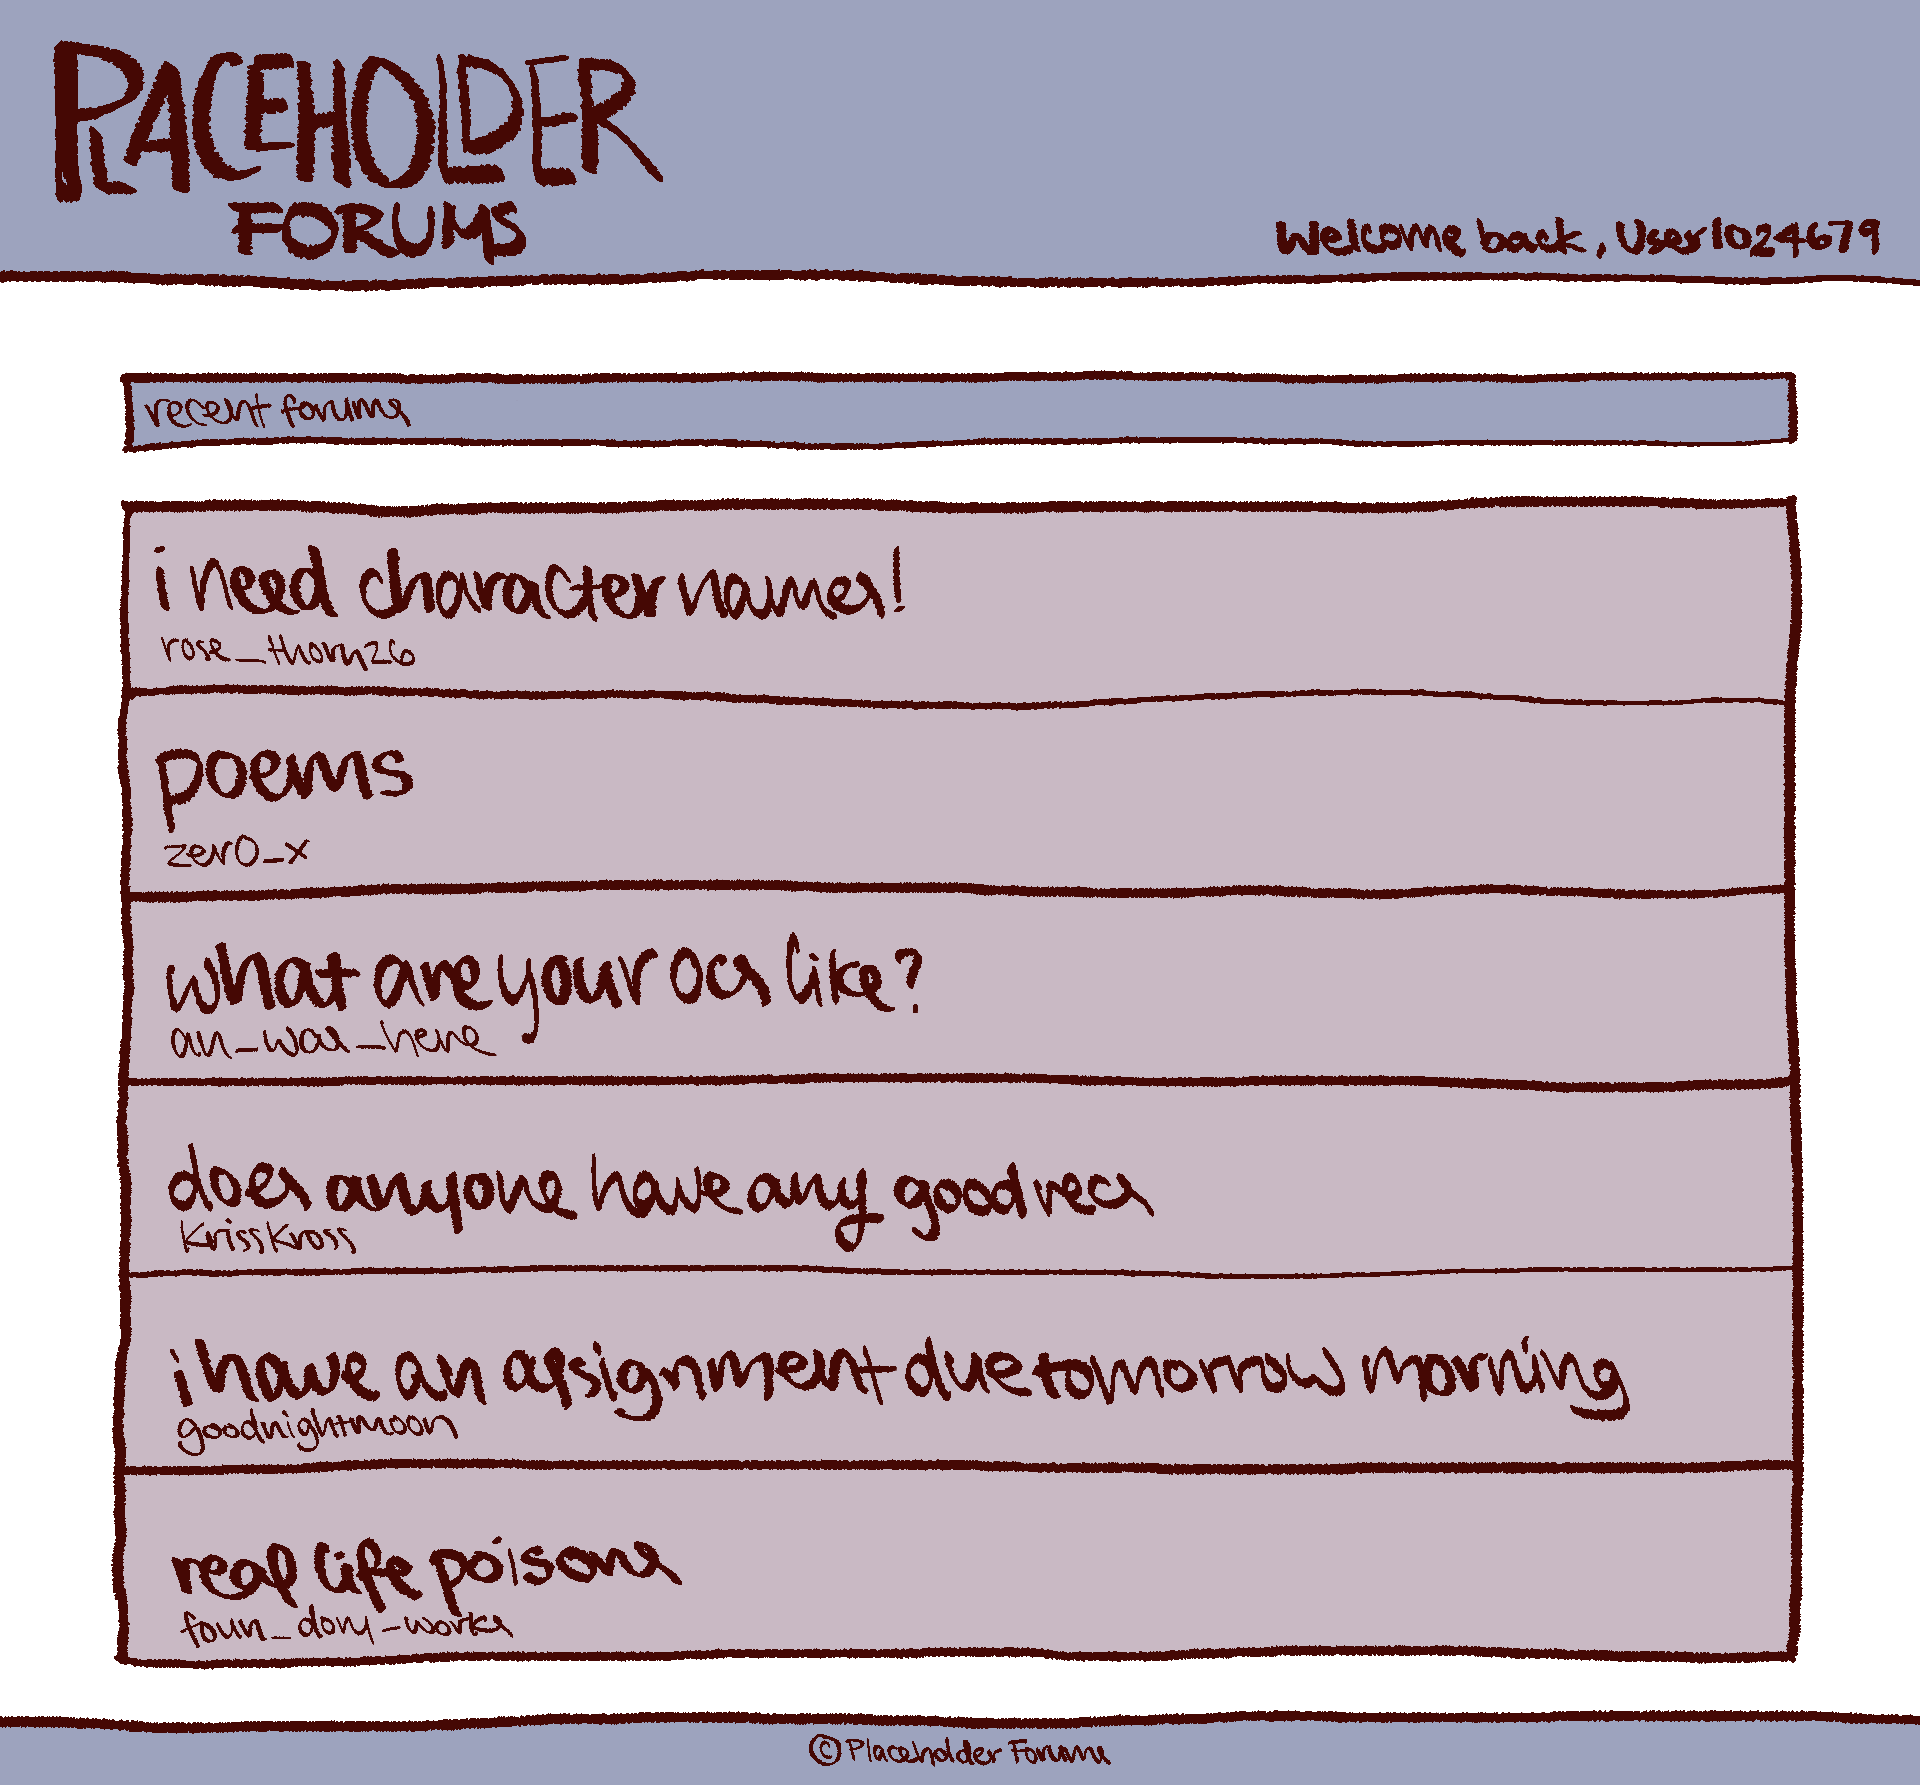 PLACEHOLDER
FORUMS
Welcome back, User1024679
recent forums
i need character names!
rose_thorn26
poems
zer0_x
what are your ocs like?
an_was_here
does anyone have any good recs
krisskross
i have an assignment due tomorrow morning
goodnightmoon
real life poisons
foun_dory_works
© Placeholder Forums